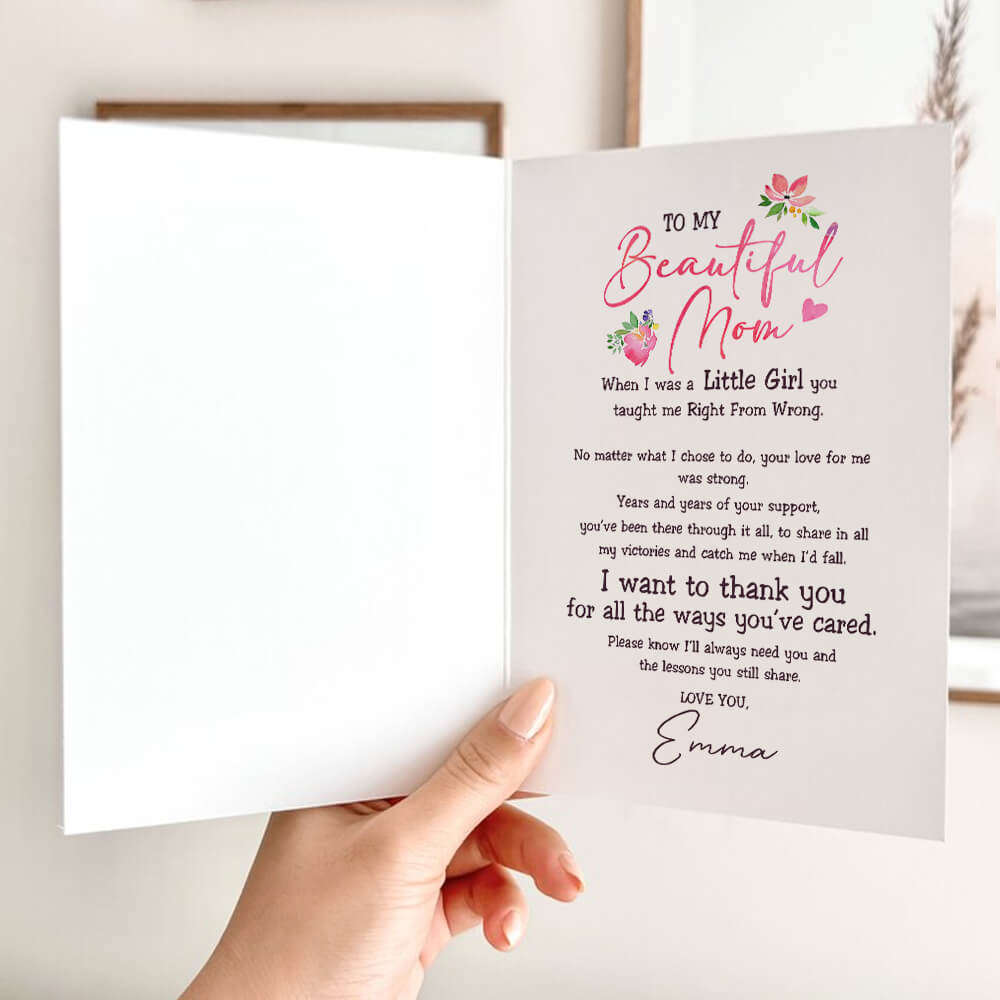 TO MY
Beautiful
Mom
When I was a Little Girl you
taught me Right From Wrong.
No matter what I chose to do, your love for me
was strong.
Years and years of your support,
you've been there through it all, to share in all
my victories and catch me when I'd fall.
I want to thank you
for all the ways you've cared.
Please know I'll always need you and
the lessons you still share.
LOVE YOU,
Emma